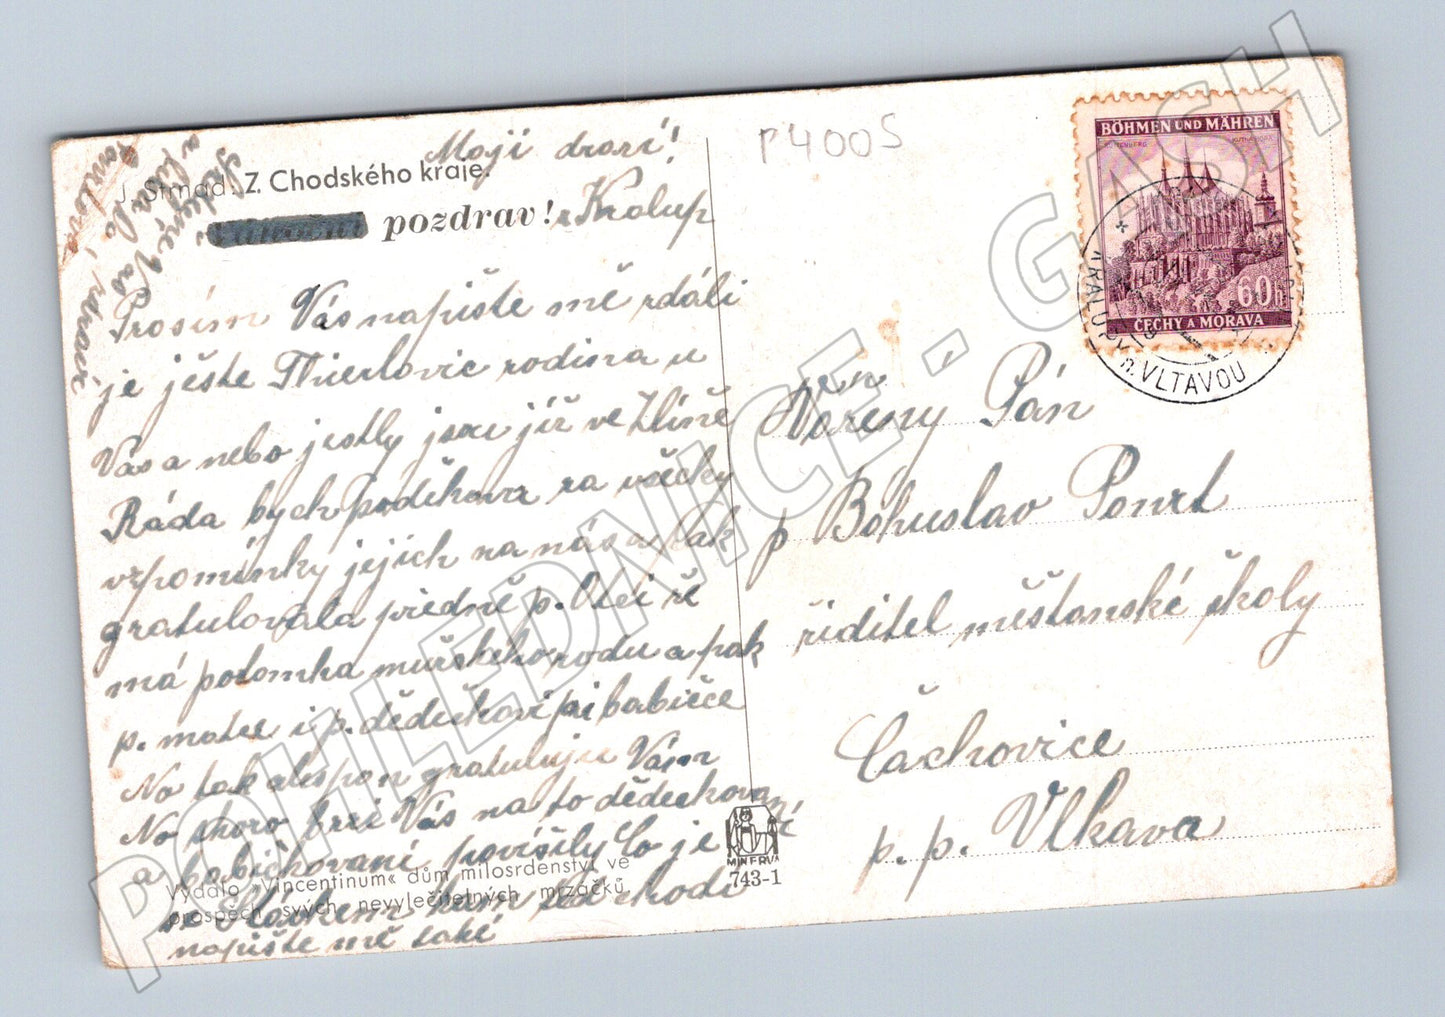 P400S
Moji drazí!
J. Strnad: Z Chodského kraje.
pozdrav!
z Kralup
Prosím Vás napište mě zdáli
je ješte rodina u
Vás a nebo jestly jsou již ve Zlíně
Ráda bych poděkovar za všecky
vzpomínky jejich na nás a pak
gratulovala předně p. Otci že
má potomka mužského rodu a pak
p. matce i p. dědečkovi pí babičce
No tak alespon gratuluju Vám
No skoro brzi Vás na to dědeckovaní
a babičkovaní povíšily Co je
se kam ted chodí
napište mě také
Srdečne Vás
a líbá
Pavilova
Vydalo »Vincentinum« dům milosrdenství ve
prospěch svých nevyléčitelných mrzáčků.
MINERVA
743-1
BÖHMEN UND MÄHREN
60h
ČECHY A MORAVA
KRALUPY n. VLTAVOU
pen
Vážený Pán
p Bohuslav
řiditel měšťanské školy
Čachovice
p. p. Vlkava
POHLEDNICE - GASH